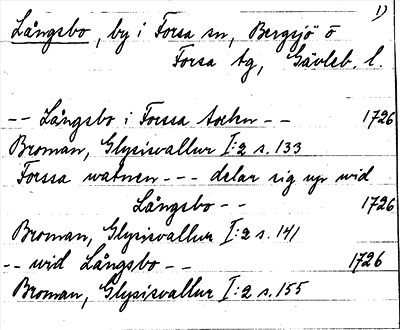 1)
Långsbo, by i Forsa sn, Bergsjö o
Forsa tg, Gävleb. l.
-- Långsbo i Forssa sochn -- 1726
Broman, Glysisvallur I:2 s. 133
Forssa watnen --- delar sig up wid
Långsbo -- 1726
Broman, Glysisvallur I:2 s. 141
-- wid Långsbo -- 1726
Broman, Glysisvallur I:2 s. 155